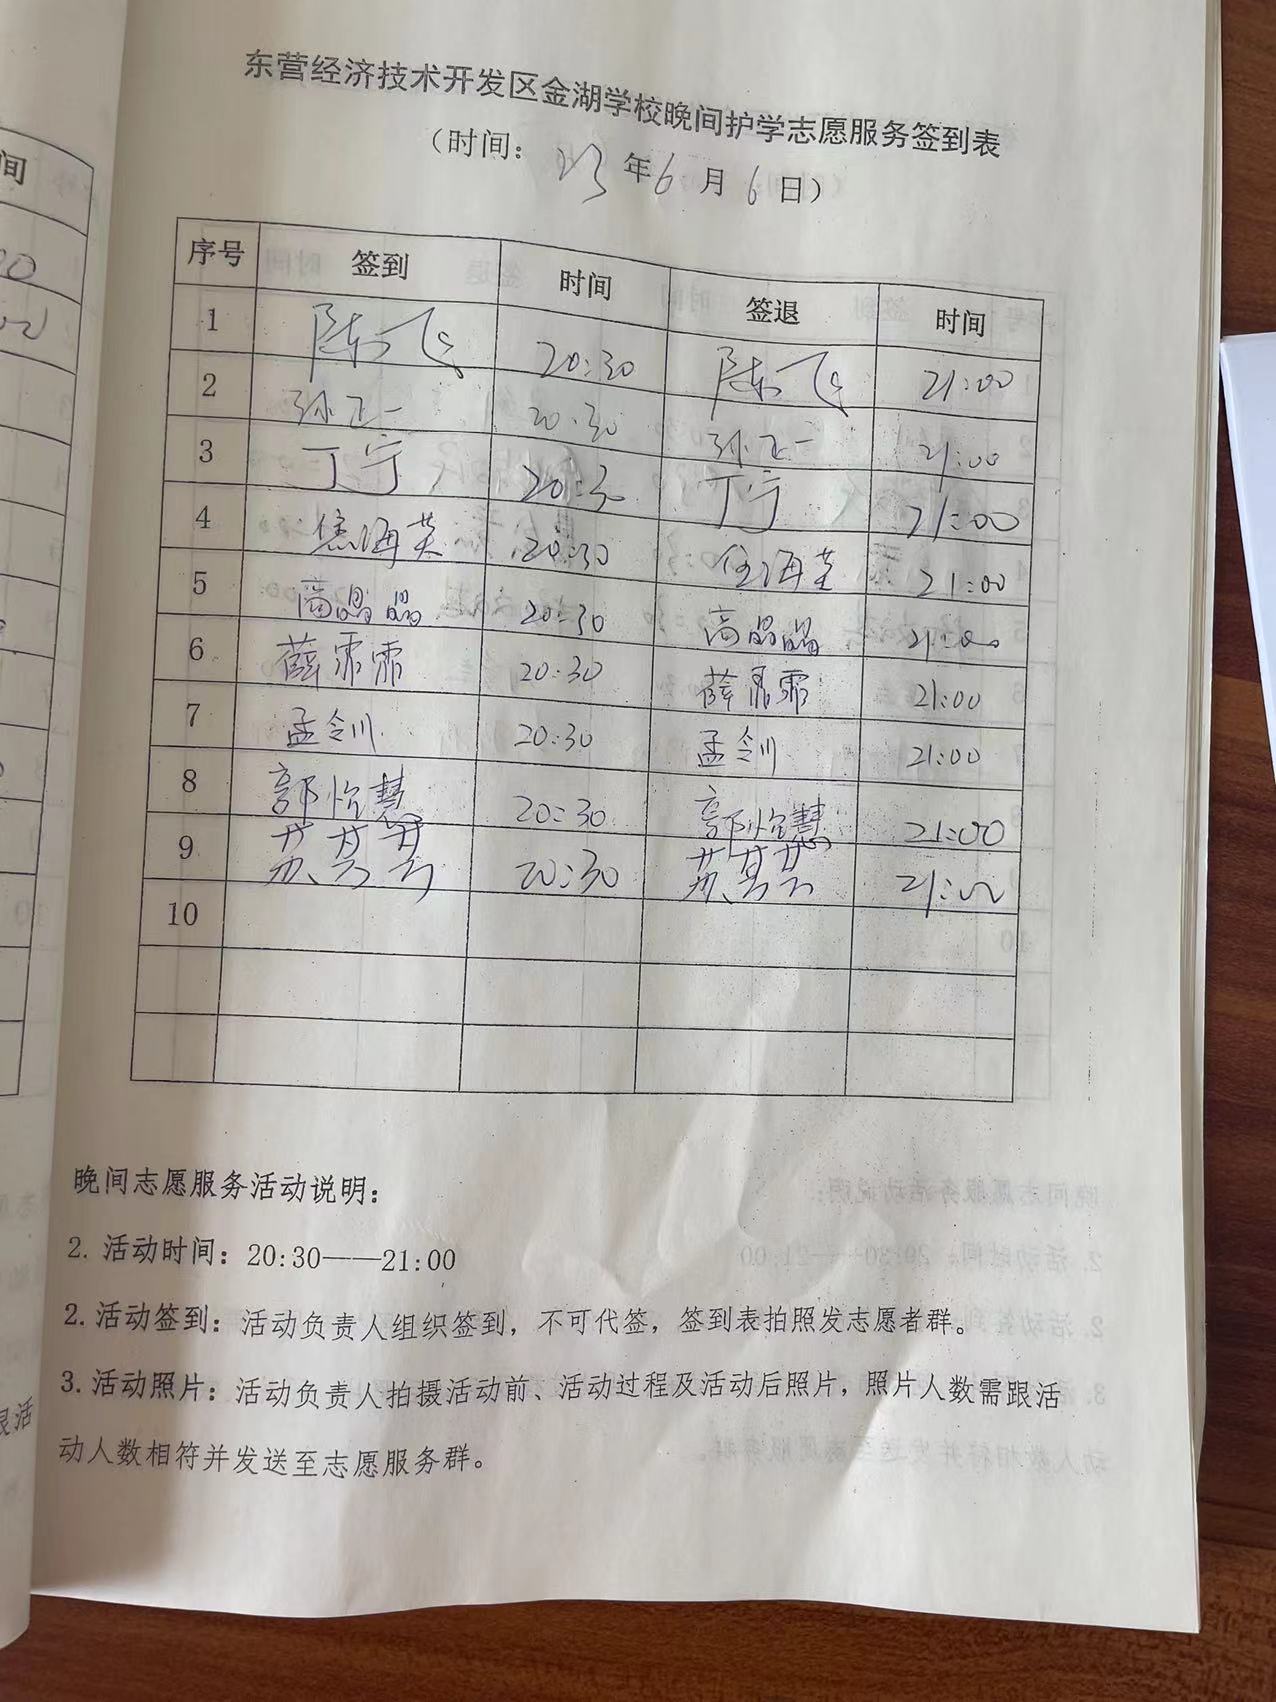 东营经济技术开发区金湖学校晚间护学志愿服务签到表
（时间：23年6月6日）
序号 签到 时间 签退 时间
1 陈飞 20:30 陈飞 21:00
2 孙正一 20:30 孙正一 21:00
3 丁宁 20:30 丁宁 21:00
4 焦海英 20:30 焦海英 21:00
5 高晶晶 20:30 高晶晶 21:00
6 薛霏霏 20:30 薛霏霏 21:00
7 孟令川 20:30 孟令川 21:00
8 郭怡慧 20:30 郭怡慧 21:00
9 20:30 21:00
10
晚间志愿服务活动说明：
2. 活动时间：20:30——21:00
2. 活动签到：活动负责人组织签到，不可代签，签到表拍照发志愿者群。
3. 活动照片：活动负责人拍摄活动前、活动过程及活动后照片，照片人数需跟活
动人数相符并发送至志愿服务群。